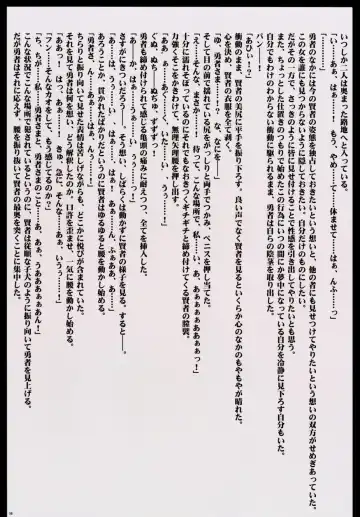 いつしか二人は奥まった路地へと入っている。
「い…あぁ、はぁ…！　もう、やめ……て……休ませて……はぁ、んふ……っ」
勇者のなかには今の賢者の姿態を独占しておきたいという想いと、他の者にも見せつけてやりたいという想いの双方がせめぎあっていた。
この女を誰にも見つからないように隠しておきたい。自分だけのものにしたい。
だがその一方で、さっきのように男に見せ付けることで性感を引き出してやりたいとも思う。
ちょっとした仕置きのつもりで始めたこの行為にいつの間にか夢中になっている自分を冷静に見下ろす自分もいた。
自分でもわけのわからない衝動に駆られるまま、勇者は自らの陰茎を取り出した。
パン――！
「あひぃ…！？」
衝動のまま、賢者の尻に平手を振り下ろす。良い声でなく賢者を見るといくらか心のなかのもやもやが晴れた。
心を決め、賢者の衣服を全て剥ぐ。
「ゆ、勇者さま…！？　な、なにを――」
そして目の前で揺れている尻がっしりと両手でつかみ、ペニスを押し当てた。
「あぁ、そんな、まさか……！　待って、こんな場所で、私…、あ、あぁぁぁぁぁぁぁっ！」
十分に濡れそぼっているのにそれでもなおきつくギチギチと締め付けてくる賢者の膣襞。
力強くそこをかきわけて、無理矢理腰を押し出す。
「あぁ…ぁ、あぐぅ…い、いた…っ」
ぬ、ぬちゅ、ずずずっ…
勇者も締め付けられて感じる亀頭の痛みに耐えつつ、全てを挿入した。
「あ…かは…っ、はぁ…うぁ…」
さすがにきついだろう。そう想い、しばらくは動かずに賢者の様子を見る、すると――。
「あ…はぁ、う…あ、い、はぁ、そんな…あぁん、ふぁぁあ、あ…！」
あろうことか、貫かれたばかりだというのに賢者はゆるゆると腰を動かし始める。
「勇者、さ、ん…あぁ…はぁ、んぅ……！」
ちらりと振り向いて見せた表情は苦しげながらも、どこかに悦びが含まれていた。
それを見て勇者は何を想い、どう解釈したか。口許を歪ませ、一気に腰を動かし始める。
「あぁぁ！　あ、きゅ、急に、そんな……あぁ、いうぅ……！」
「フン……そんなカオをして、もう感じてるのか？」
「ち、ちが…！　私、勇者さまと、勇者さまのこと、あ、あぁ、うあああああぁん！」
こんな状況でこんな場所でされているというのに、賢者は従順な子犬のように振り向いて勇者を見上げる。
だが勇者はそれに応えず、腰を振り抜いて賢者の最奥を突くことに集中した。